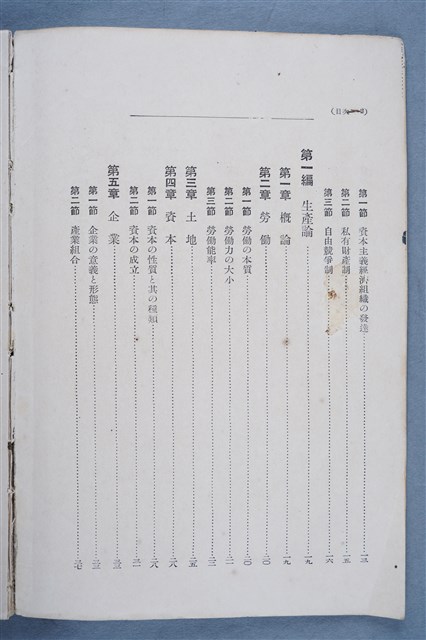 第一節 資本主義經濟組織の發達 一三
第二節 私有財產制 一五
第三節 自由競爭制 一六
第一編 生產論 一九
第一章 槪論 一九
第二章 勞働 二〇
第一節 勞働の本質 二〇
第二節 勞働力の大小 二一
第三節 勞働能率 二三
第三章 土地 二五
第四章 資本 二八
第一節 資本の性質と其の種類 二八
第二節 資本の成立
第五章 企業
第一節 企業の意義と形態
第二節 產業組合